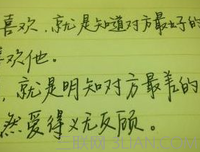 喜欢，就是知道对方最好的
喜欢他。
，就是明知对方最差的
然爱得义无反顾。